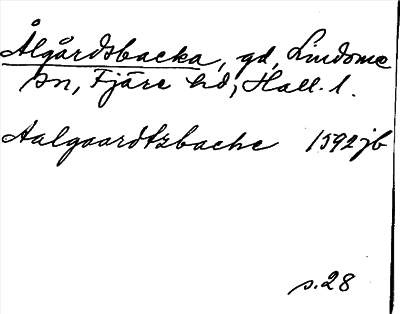 Ålgårdsbacka, gd, Lindome
sn, Fjäre hd, Hall. l.
Aalgaardtzbache 1592 jb
s. 28